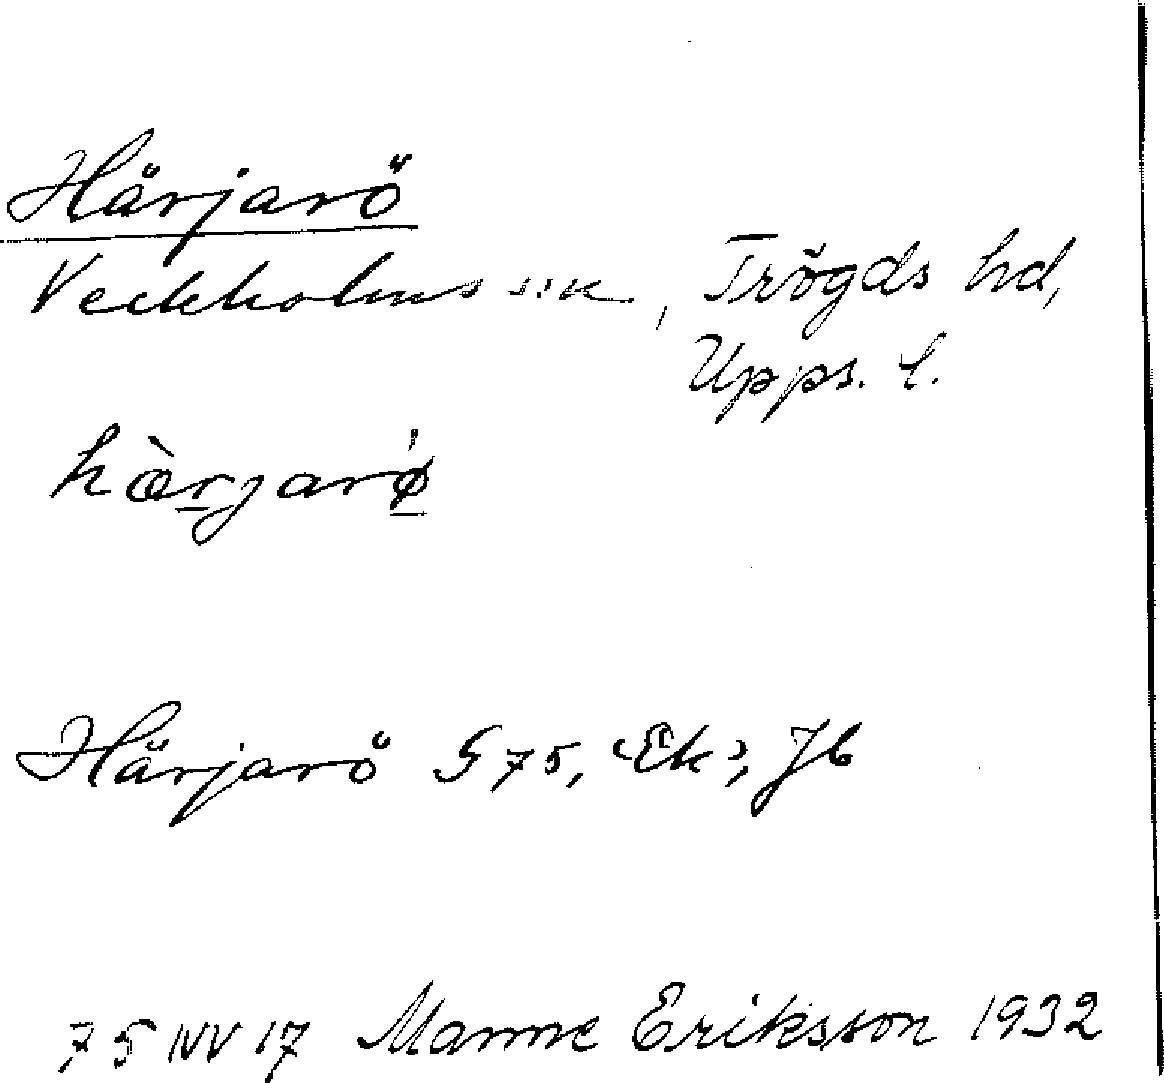 Härjarö
Veckholms sn, Trögds hd,
Upps. l.
hàrjarø̍
Härjarö G 75, (Ek), Jb
75 NV 17 Manne Eriksson 1932